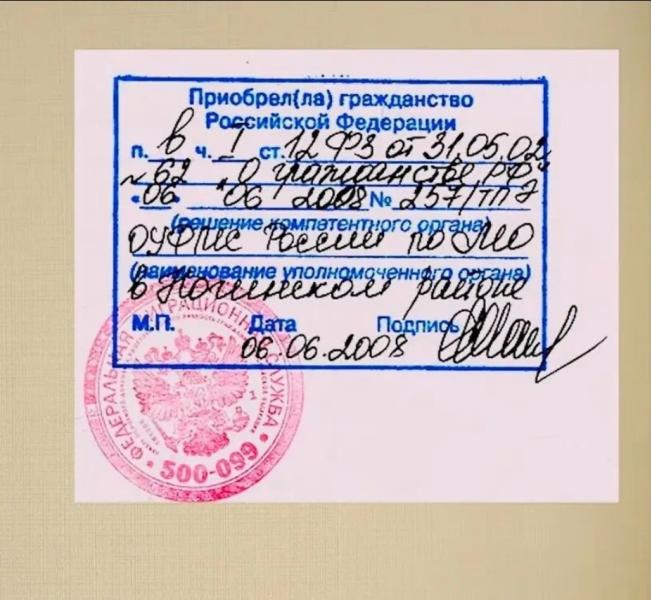 Приобрел(ла) гражданство
Российской Федерации
п. в ч. I ст. 12 ФЗ от 31.05.02
№62 "О гражданстве РФ"
"06" "06 2008 № 257/ТП
(решение компетентного органа)
ОУФМС России по МО
(наименование уполномоченного органа)
в Ногинском районе
М.П. Дата Подпись
06.06.2008
ФЕДЕРАЛЬНАЯ МИГРАЦИОННАЯ СЛУЖБА
1
• 500-099 •